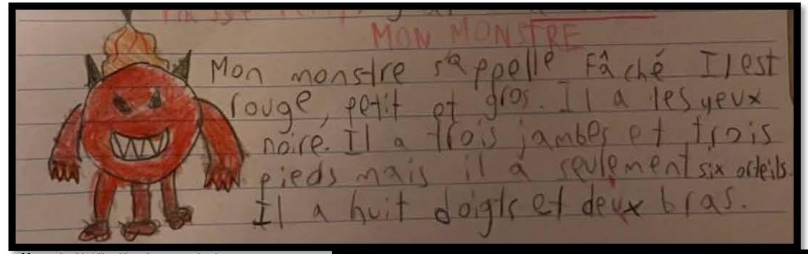 MON MONSTRE
Mon monstre s'appelle Fâché Il est
rouge, petit et gros. Il a les yeux
noiré. Il a trois jambes et trois
pieds mais il a seulement six orteils.
Il a huit doigts et deux bras.